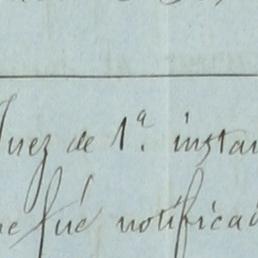 Juez de 1ª. instan
ue fué notifica